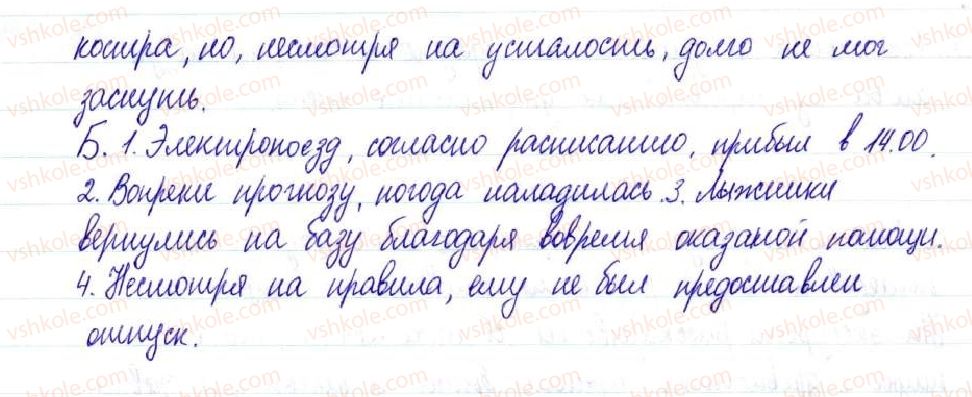 костра, но, несмотря на усталость, долго не мог
заснуть.
Б. 1. Электропоезд, согласно расписанию, прибыл в 14.00.
2. Вопреки прогнозу, погода наладилась. 3. Лыжники
вернулись на базу благодаря вовремя оказаной помощи.
4. Несмотря на правила, ему не был предоставлен
отпуск.